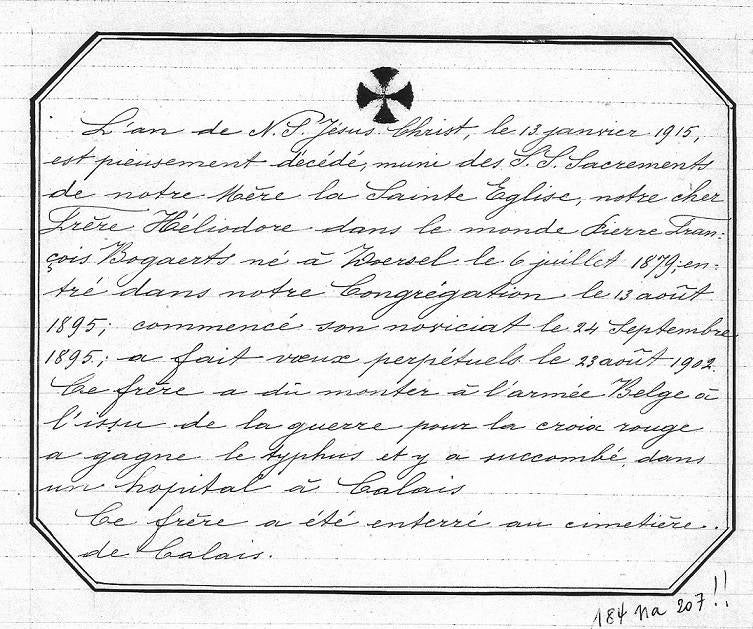 L'an de N. S. Jésus Christ, le 13 janvier 1915,
est pieusement décédé, muni des S. S. Sacrements
de notre Mère la Sainte Eglise, notre cher
Frère Héliodore dans le monde Pierre Fran-
çois Bogaerts né à Woersel le 6 juillet 1879; en-
tré dans notre Congrégation le 13 août
1895; commencé son noviciat le 24 Septembre
1895; a fait vœux perpétuels le 23 août 1902.
Ce frère a dû monter à l'armée Belge à
l'issu de la guerre pour la croix rouge
a gagne le typhus et y a succombé dans
un hopital à Calais
Ce frère a été enterré au cimetière
de Calais.
184 na 207!!